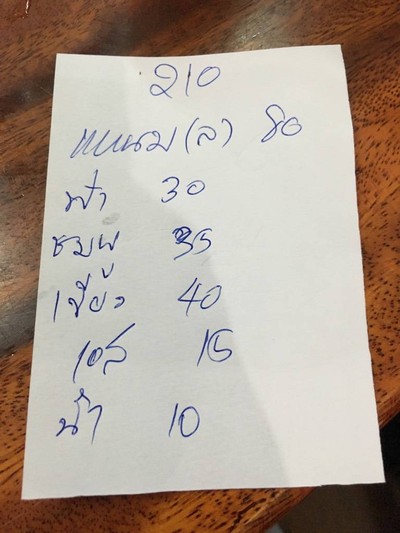 210
แหนม(ล) 80
ฟ้า 30
ชมพู 35
เขียว 40
เอส 15
น้ำ 10